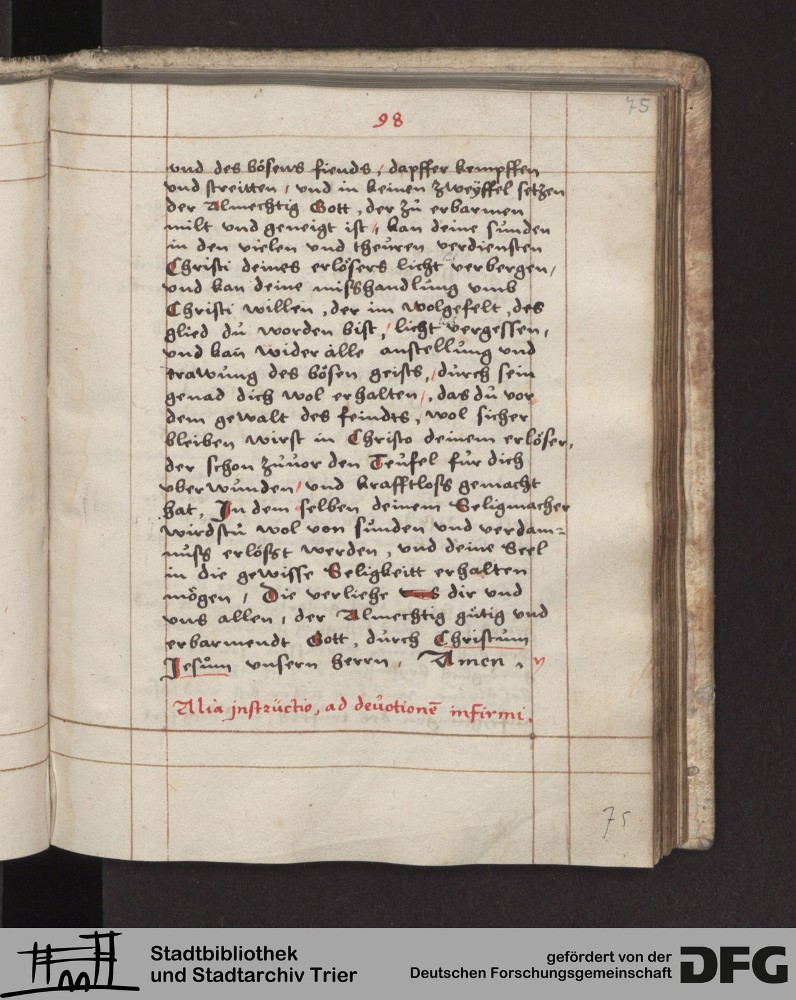 75
98
vnd des bösens fiends, dapffer kempffen
vnd streitten, vnd in keinen zweÿffel setzen
der Almechtig Gott, der zů erbarmen
milt vnd geneigt ist, kan deine sunden
in den vielen vnd theůren verdiensten
Christi deines erlösers licht verbergen,
vnd kan deine misshandlůng vmb
Christi willen, der im wolgefelt, des
glied dů worden bist, licht vergessen,
vnd kan wider alle anstellůng vnd
trawůng des bösen geists, durch sein
genad dich wol erhalten, das dů vor
dem gewalt des feindts, wol sicher
bleiben wirst in Christo deinem erlöser,
der schon zůuor den Teůfel für dich
vberwůnden, vnd krafftloss gemacht
hat, In dem selben deinem Seligmacher
wirdstů wol von sůnden vnd verdam=
nůss erlösst werden, vnd deine Seel
in die gewisse Seligkeitt erhalten
mögen, Die verliehe dir vnd
vns allen, der Almechtig gütig vnd
erbarmendt Gott, důrch Christum
Jesům vnsern herrn, Amen.
Alia jnstrůctio, ad deůotionē infirmi.
75
Stadtbibliothek
und Stadtarchiv Trier
gefördert von der
Deutschen Forschungsgemeinschaft
DFG